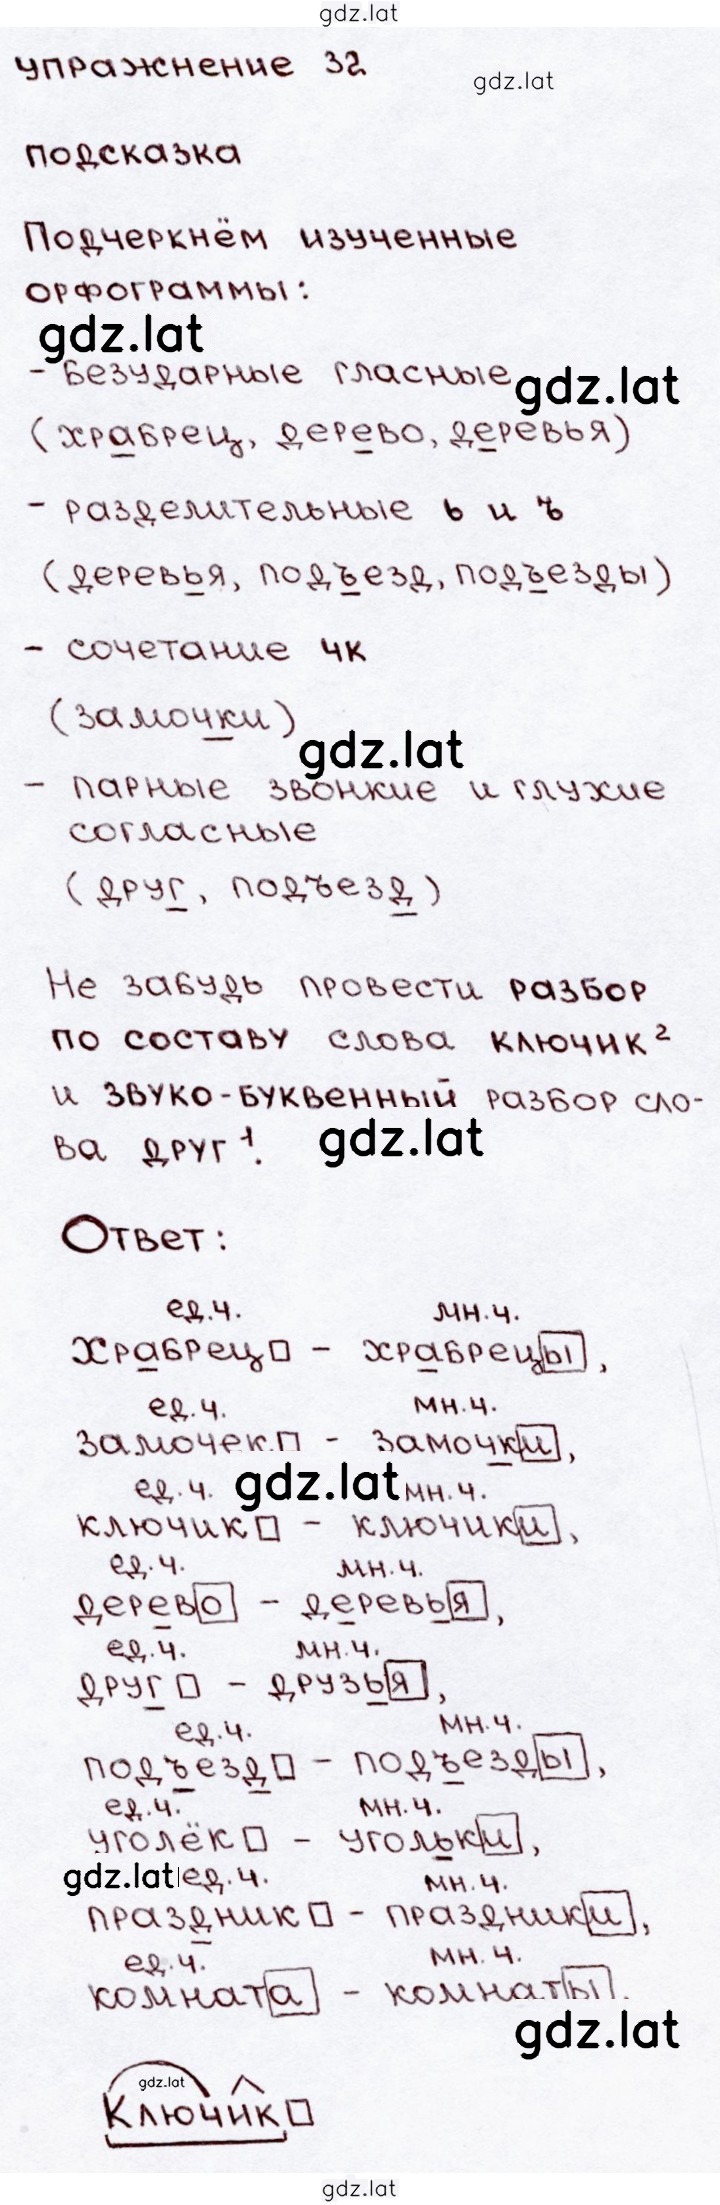 gdz.lat
упражнение 32
gdz.lat
подсказка
Подчеркнём изученные
орфограммы:
gdz.lat
- безударные гласные
gdz.lat
(храбрец, дерево, деревья)
- разделительные ь и ъ
(деревья, подъезд, подъезды)
- сочетание чк
(замочки)
gdz.lat
- парные звонкие и глухие
согласные
(друг, подъезд)
Не забудь провести разбор
по составу слова ключик²
и звуко-буквенный разбор сло-
ва друг¹.
gdz.lat
Ответ:
ед.ч. мн.ч.
храбрец - храбрецы,
ед.ч. мн.ч.
замочек - замочки,
ед.ч. gdz.lat мн.ч.
ключик - ключики,
ед.ч. мн.ч.
дерево - деревья,
ед.ч. мн.ч.
друг - друзья,
ед.ч. мн.ч.
подъезд - подъезды,
ед.ч. мн.ч.
уголёк - угольки,
gdz.lat ед.ч. мн.ч.
праздник - праздники,
ед.ч. мн.ч.
комната - комнаты.
gdz.lat
gdz.lat
Ключик
gdz.lat